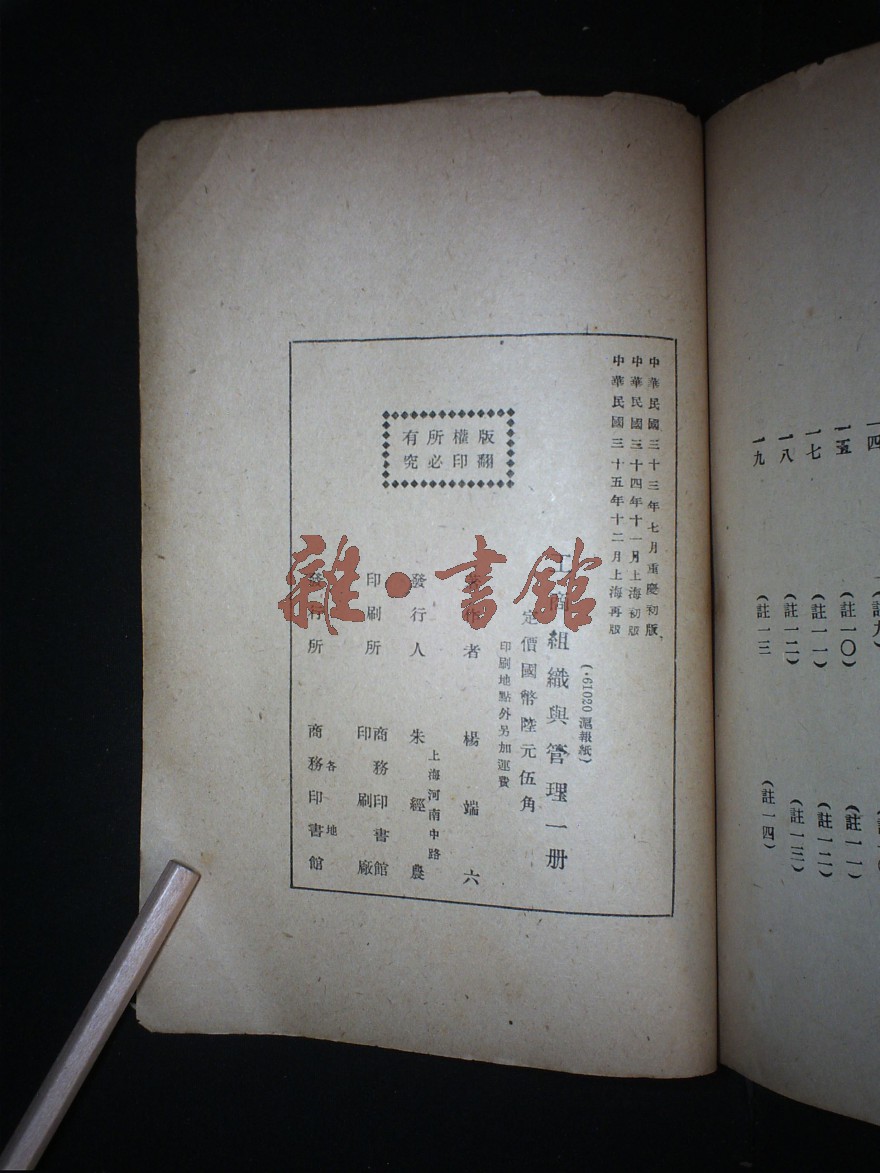 中華民國三十三年七月重慶初版
中華民國三十四年十一月上海初版
中華民國三十五年十二月上海再版
(·61020 滬報紙)
工商組織與管理一册
定價國幣陸元伍角
印刷地點外另加運費
著作者 楊端六
上海河南中路
發行人 朱經農
印刷所 商務印書館印刷廠
各地
發行所 商務印書館
版權所有
翻印必究
雜·書館
一四
一五
一七
一八
一九
註九)
(註一〇)
(註一一)
(註一二)
(註一三
(註一一)
(註一二)
(註一三)
(註一四)